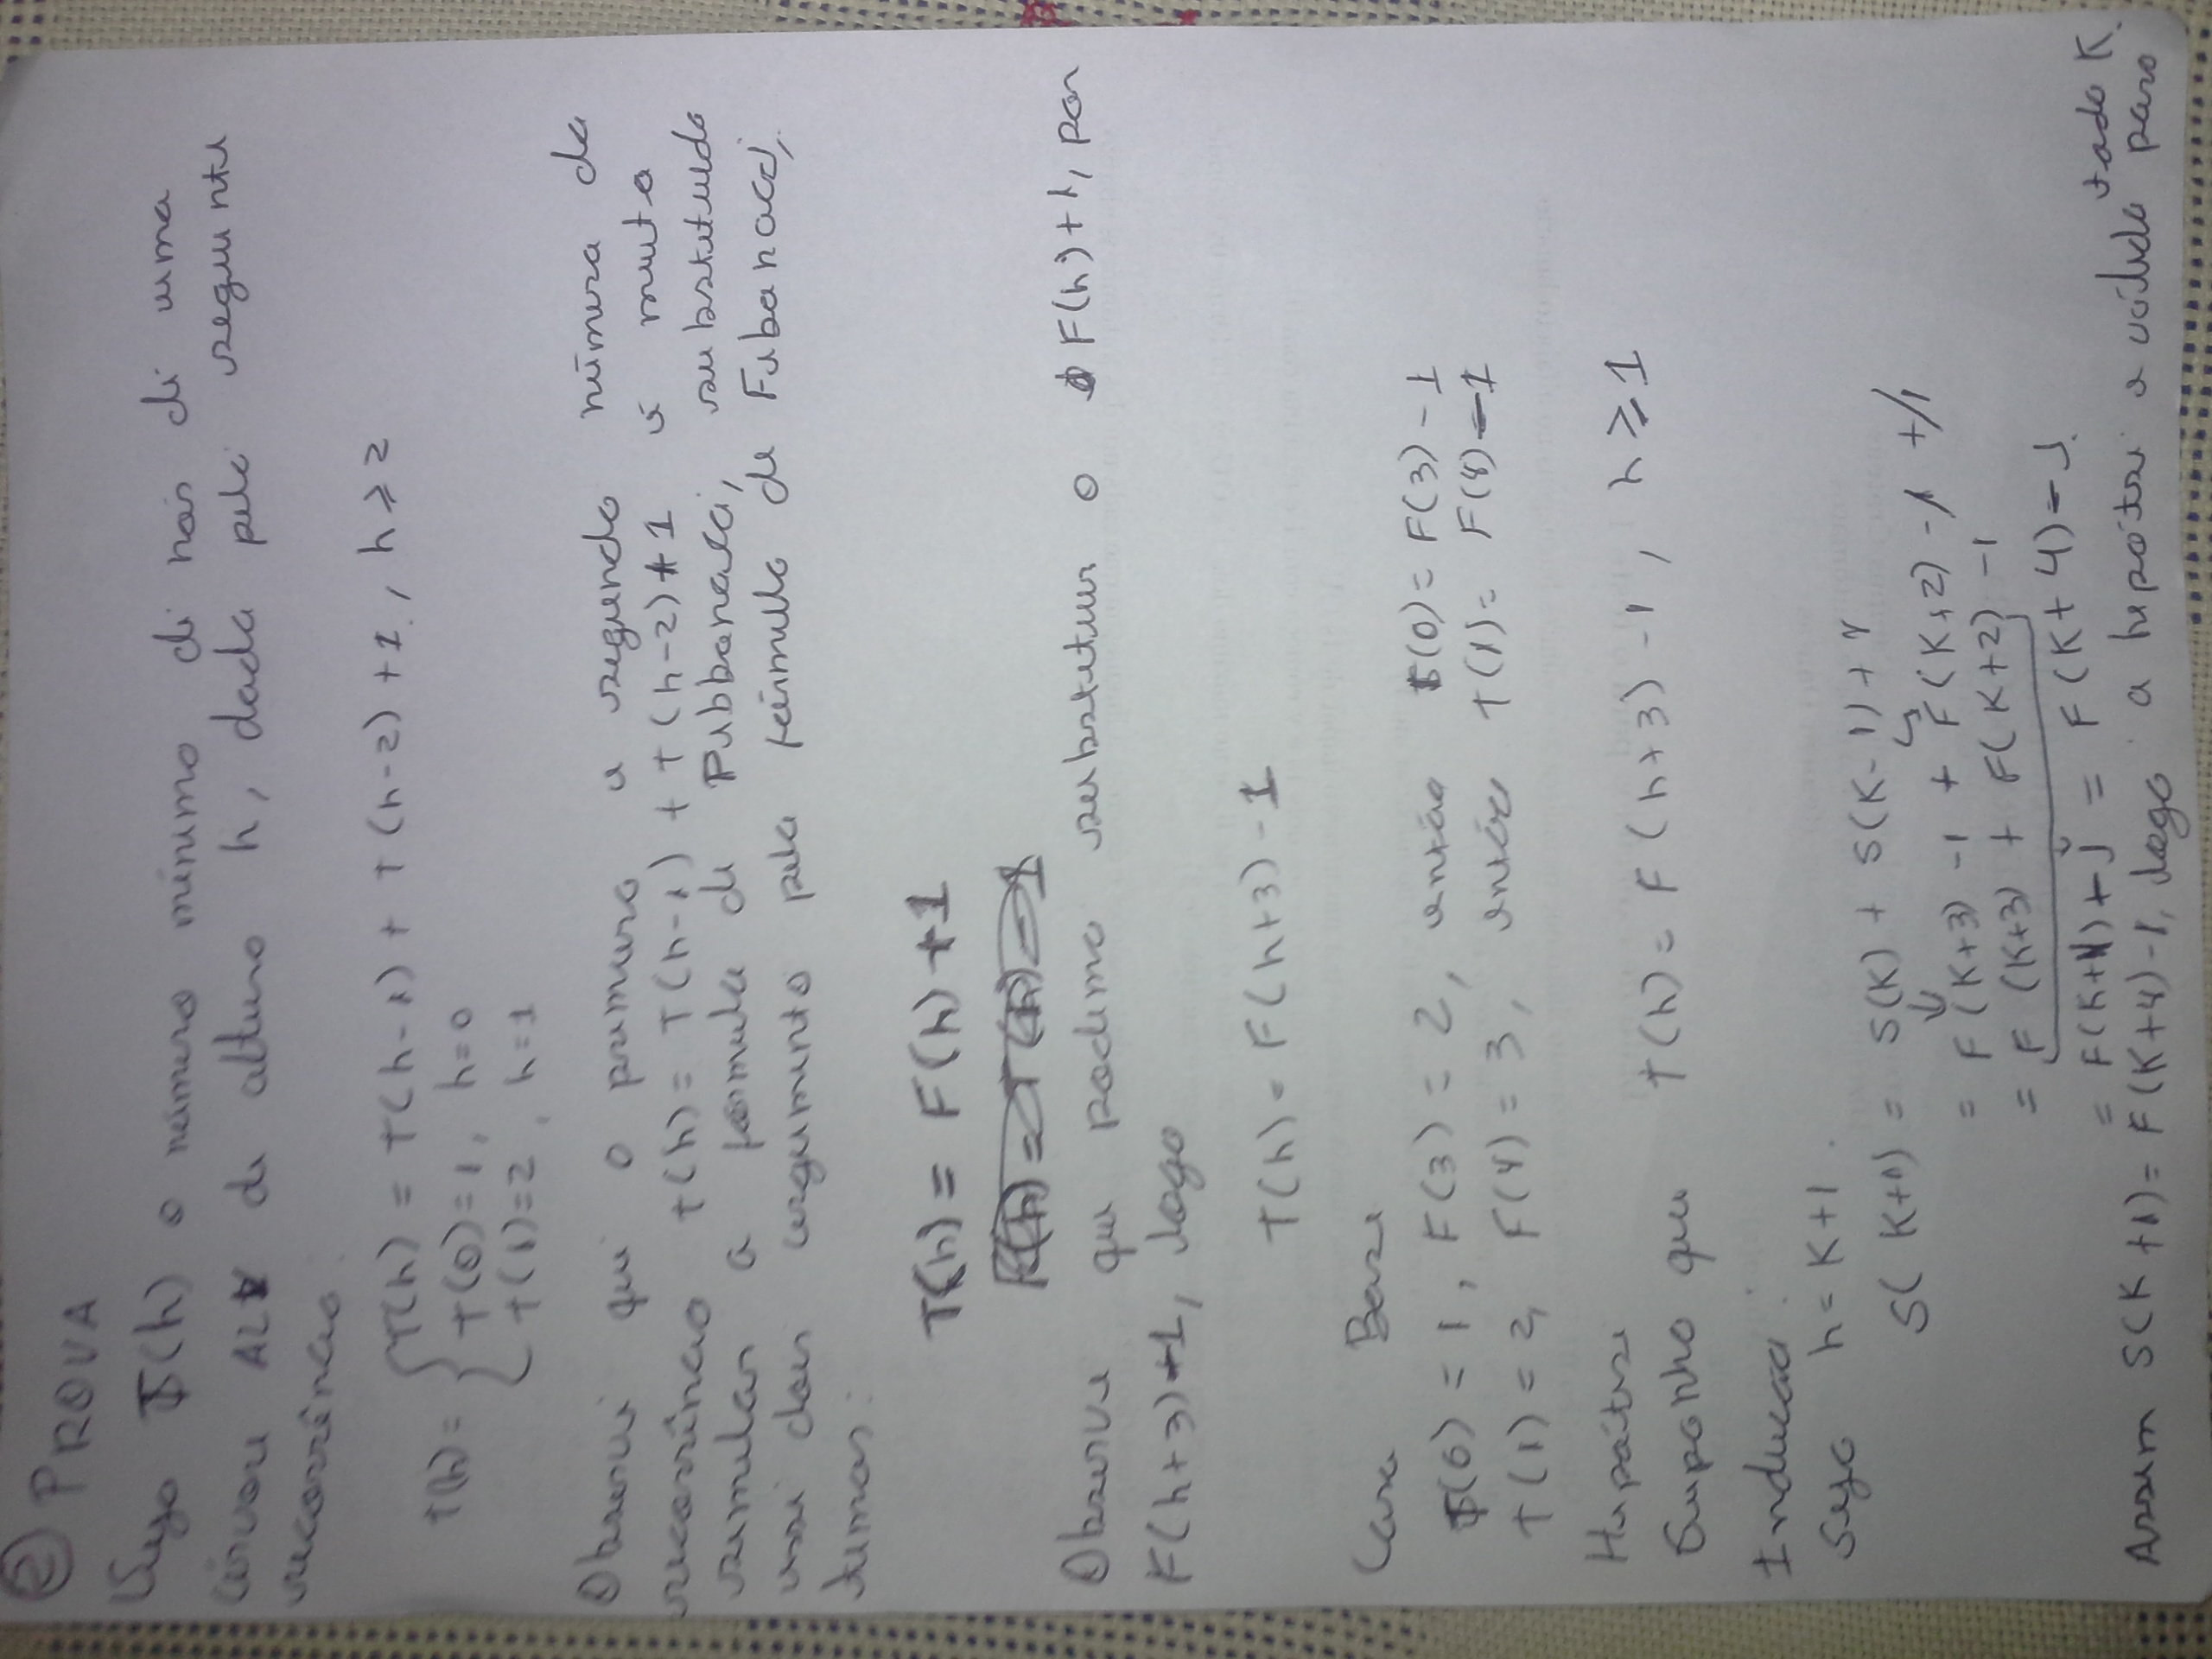 ② PROVA
Seja T(h) o número mínimo de nós de uma
árvore ALV de altura h, dada pela seguinte
recorrência.
T(h) = { T(h) = T(h-1) + T(h-2) + 1, h ≥ 2
T(0) = 1, h=0
T(1) = 2, h=1
Observe que o primeiro e segundo número da
recorrência T(h) = T(h-1) + T(h-2) + 1 é muito
similar a formula de Fibbonacci, substituido
esse dois argumento pela fórmula de Fibonacci,
temos:
T(h) = F(h) + 1
Observe que podemo substituir o F(h)+1, por
F(h+3)-1, logo
T(h) = F(h+3) - 1
Caso Base
T(0) = 1, F(3) = 2, então T(0) = F(3) - 1
T(1) = 2, F(4) = 3, então T(1) = F(4) - 1
Hipótese
Suponho que T(h) = F(h+3) - 1, h ≥ 1
Indução
Seja h = K+1.
S(K+1) = S(K) + S(K-1) + 1
= F(K+3) - 1 + F(K+2) - 1 + 1
= F(K+3) + F(K+2) - 1
= F(K+4) - 1.
Assim S(K+1) = F(K+4) - 1, logo a hipótese é válida para
todo K.